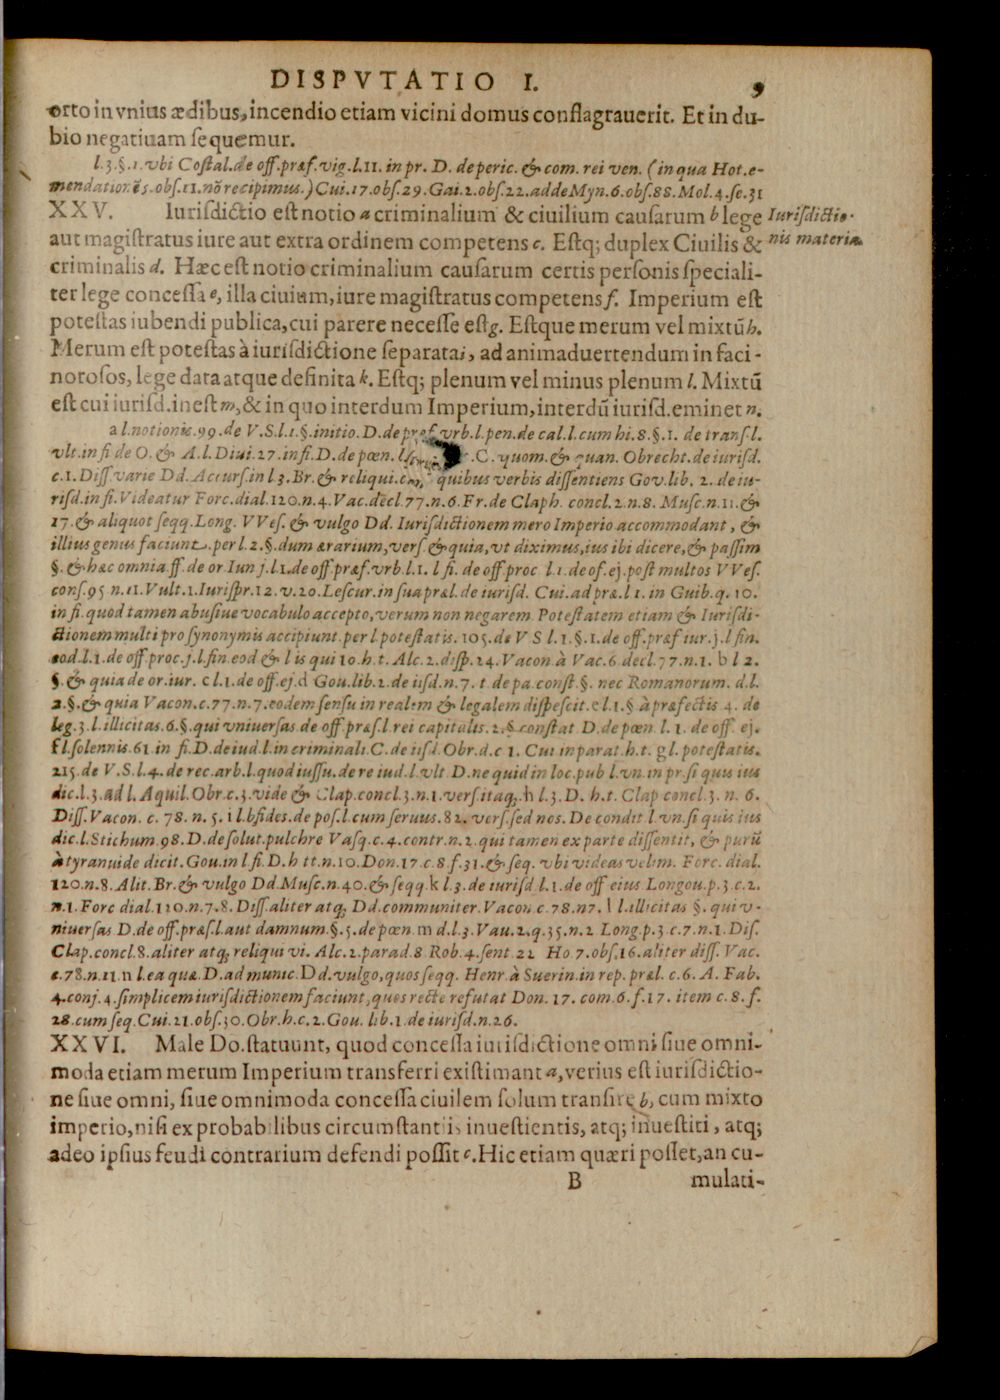 DISPVTATIO I. 9
orto in vnius ædibus, incendio etiam vicini domus conflagrauerit. Et in du-
bio negatiuam sequemur.
l.3.§.1.vbi Costal.de off.præf.vig.l.11. in pr. D. de peric. & com. rei ven. (in qua Hot.e-
mendationẽs.obs.11.nõ recipimus.) Cui.17.obs.29.Gai.2.obs.22.adde Myn.6.obs.88.Mol.4.se.31
XXV. Iurisdictio est notio a criminalium & ciuilium causarum b lege
Iurisdictio-
aut magistratus iure aut extra ordinem competens c. Estq; duplex Ciuilis &
nis materia.
criminalis d. Hæc est notio criminalium causarum certis personis speciali-
ter lege concessa e, illa ciuium, iure magistratus competens f. Imperium est
potestas iubendi publica, cui parere necesse est g. Estque merum vel mixtũ h.
Merum est potestas à iurisdictione separata i, ad animaduertendum in faci-
norosos, lege data atque definita k. Estq; plenum vel minus plenum l. Mixtũ
est cui iurisd. inest m, & in quo interdum Imperium, interdũ iurisd. eminet n.
a l.notionis.99.de V.S.l.1.§.initio.D.de præf.vrb.l.pen.de cal.l.cum hi.8.§.1. de trans.l.
vlt.in fi de O. & A.l.Diui.27.in fi.D.de pœn. .C. quom.& quan. Obrecht.de iurisd.
c.1.Diss.varie Dd.Accurs.in l.3.Br.& reliqui. quibus verbis dissentiens Gov.lib. 2. de iu-
risd.in fi.Videatur Forc.dial.120.n.4.Vac.decl.77.n.6.Fr.de Claph. concl.2.n.8. Musc.n.11.&
17.& aliquot seqq.Long. VVes. & vulgo Dd. Iurisdictionem mero Imperio accommodant, &
illius genus faciunt.per l.2.§.dum ærarium,vers.& quia,vt diximus,ius ibi dicere,& passim
§.& hæc omnia ff.de or.Iun j.l.1.de off.præf.vrb.l.1. l fi. de off.proc l.1.de of.ej.post multos VVes.
cons.95 n.11.Vult.1.Iurispr.12.v.20.Lescur.in sua præl.de iurisd. Cui.ad præ.l 1. in Guib.q. 10.
in fi.quod tamen abusiue vocabulo accepto,verum non negarem. Potestatem etiam & Iurisdi-
ctionem multi pro synonymis accipiunt.per l potestatis.105.de V S l.1.§.1.de off.præf iur.j.l fin.
eod.l.1.de off.proc.j.l.fin eod & l is qui 10.h.t. Alc.2.disp.24.Vacon.à Vac.6 decl.77.n.1. b l 2.
§.& quia de or.iur. c l.1.de off.ej.d Gou.lib.2.de iisd.n.7. t.de pa.const.§. nec Romanorum. d.l.
2.§.& quia Vacon.c.77.n.7.eodem sensu in realem & legalem dispescit.e l.1.§ à præfectis 4. de
leg.3.l.illicitas.6.§.qui vniuersas.de off.præs.l rei capitalis.2.§.constat D.de pœn l.1.de off. ej.
f l.solennis.61 in fi.D.de iud.l.in criminali.C.de iisd.Obr.d.c 1. Cui in parat.h.t. g l.potestatis.
215.de V.S.l.4.de rec.arb.l.quod iussu.de re iud.l vlt D.ne quid in loc.pub l.vn.in pr.si quis ius
dic.l.3.ad l.Aquil.Obr.c.3.vide & Clap.concl.3.n.1.vers.itaq.h l.3.D. h.t. Clap concl.3. n. 6.
Diss.Vacon. c. 78. n. 5. i l.bfides.de pos.l.cum seruus.82. vers.sed nos. De condit l vn.si quis ius
dic.l.Stichum.98.D.de solut.pulchre Vasq.c.4.contr.n.2.qui tamen ex parte dissentit, & purũ
à tyranuide dicit.Gou.in l fi.D.h tt.n.10.Don.17.c.8 f.31.& seq. vbi videas velim. Forc. dial.
120.n.8. Alit.Br.& vulgo Dd Musc.n.40.& seqq.k l.3.de iurisd l.1.de off eius Longou.p.3 c.2.
n.1.Forc dial.120.n.7.8.Diss.aliter atq; Dd.communiter.Vacon c.78.n7. l l.illicitas §. qui v-
niuersas D.de off.præs.l.aut damnum.§.5.de pœn m d.l.3.Vau.2.q.35.n.2 Long.p.3.c.7.n.1.Dis.
Clap.concl.8.aliter atq; reliqui vi. Alc.2.parad.8 Rob.4.sent 22 Ho 7.obs.16.aliter diss. Vac.
c.78.n.11.n l.ea quæ.D.ad munic.Dd.vulgo,quos seqq. Henr.à Suerin.in rep. præl. c.6. A. Fab.
4.conj.4.simplicem iurisdictionem faciunt,quos recte refutat Don. 17. com.6.f.17. item c.8.f.
28.cum seq.Cui.21.obs.30.Obr.h.c.2.Gou. lib.1.de iurisd.n.26.
XXVI. Male Do.statuunt, quod concessa iurisdictione omni siue omni-
moda etiam merum Imperium transferri existimant a, verius est iurisdictio-
ne siue omni, siue omnimoda concessa ciuilem solum transire b, cum mixto
imperio, nisi ex probabilibus circumstantiis inuestientis, atq; inuestiti, atq;
adeo ipsius feudi contrarium defendi possit c. Hic etiam quæri posset, an cu-
B mulati-